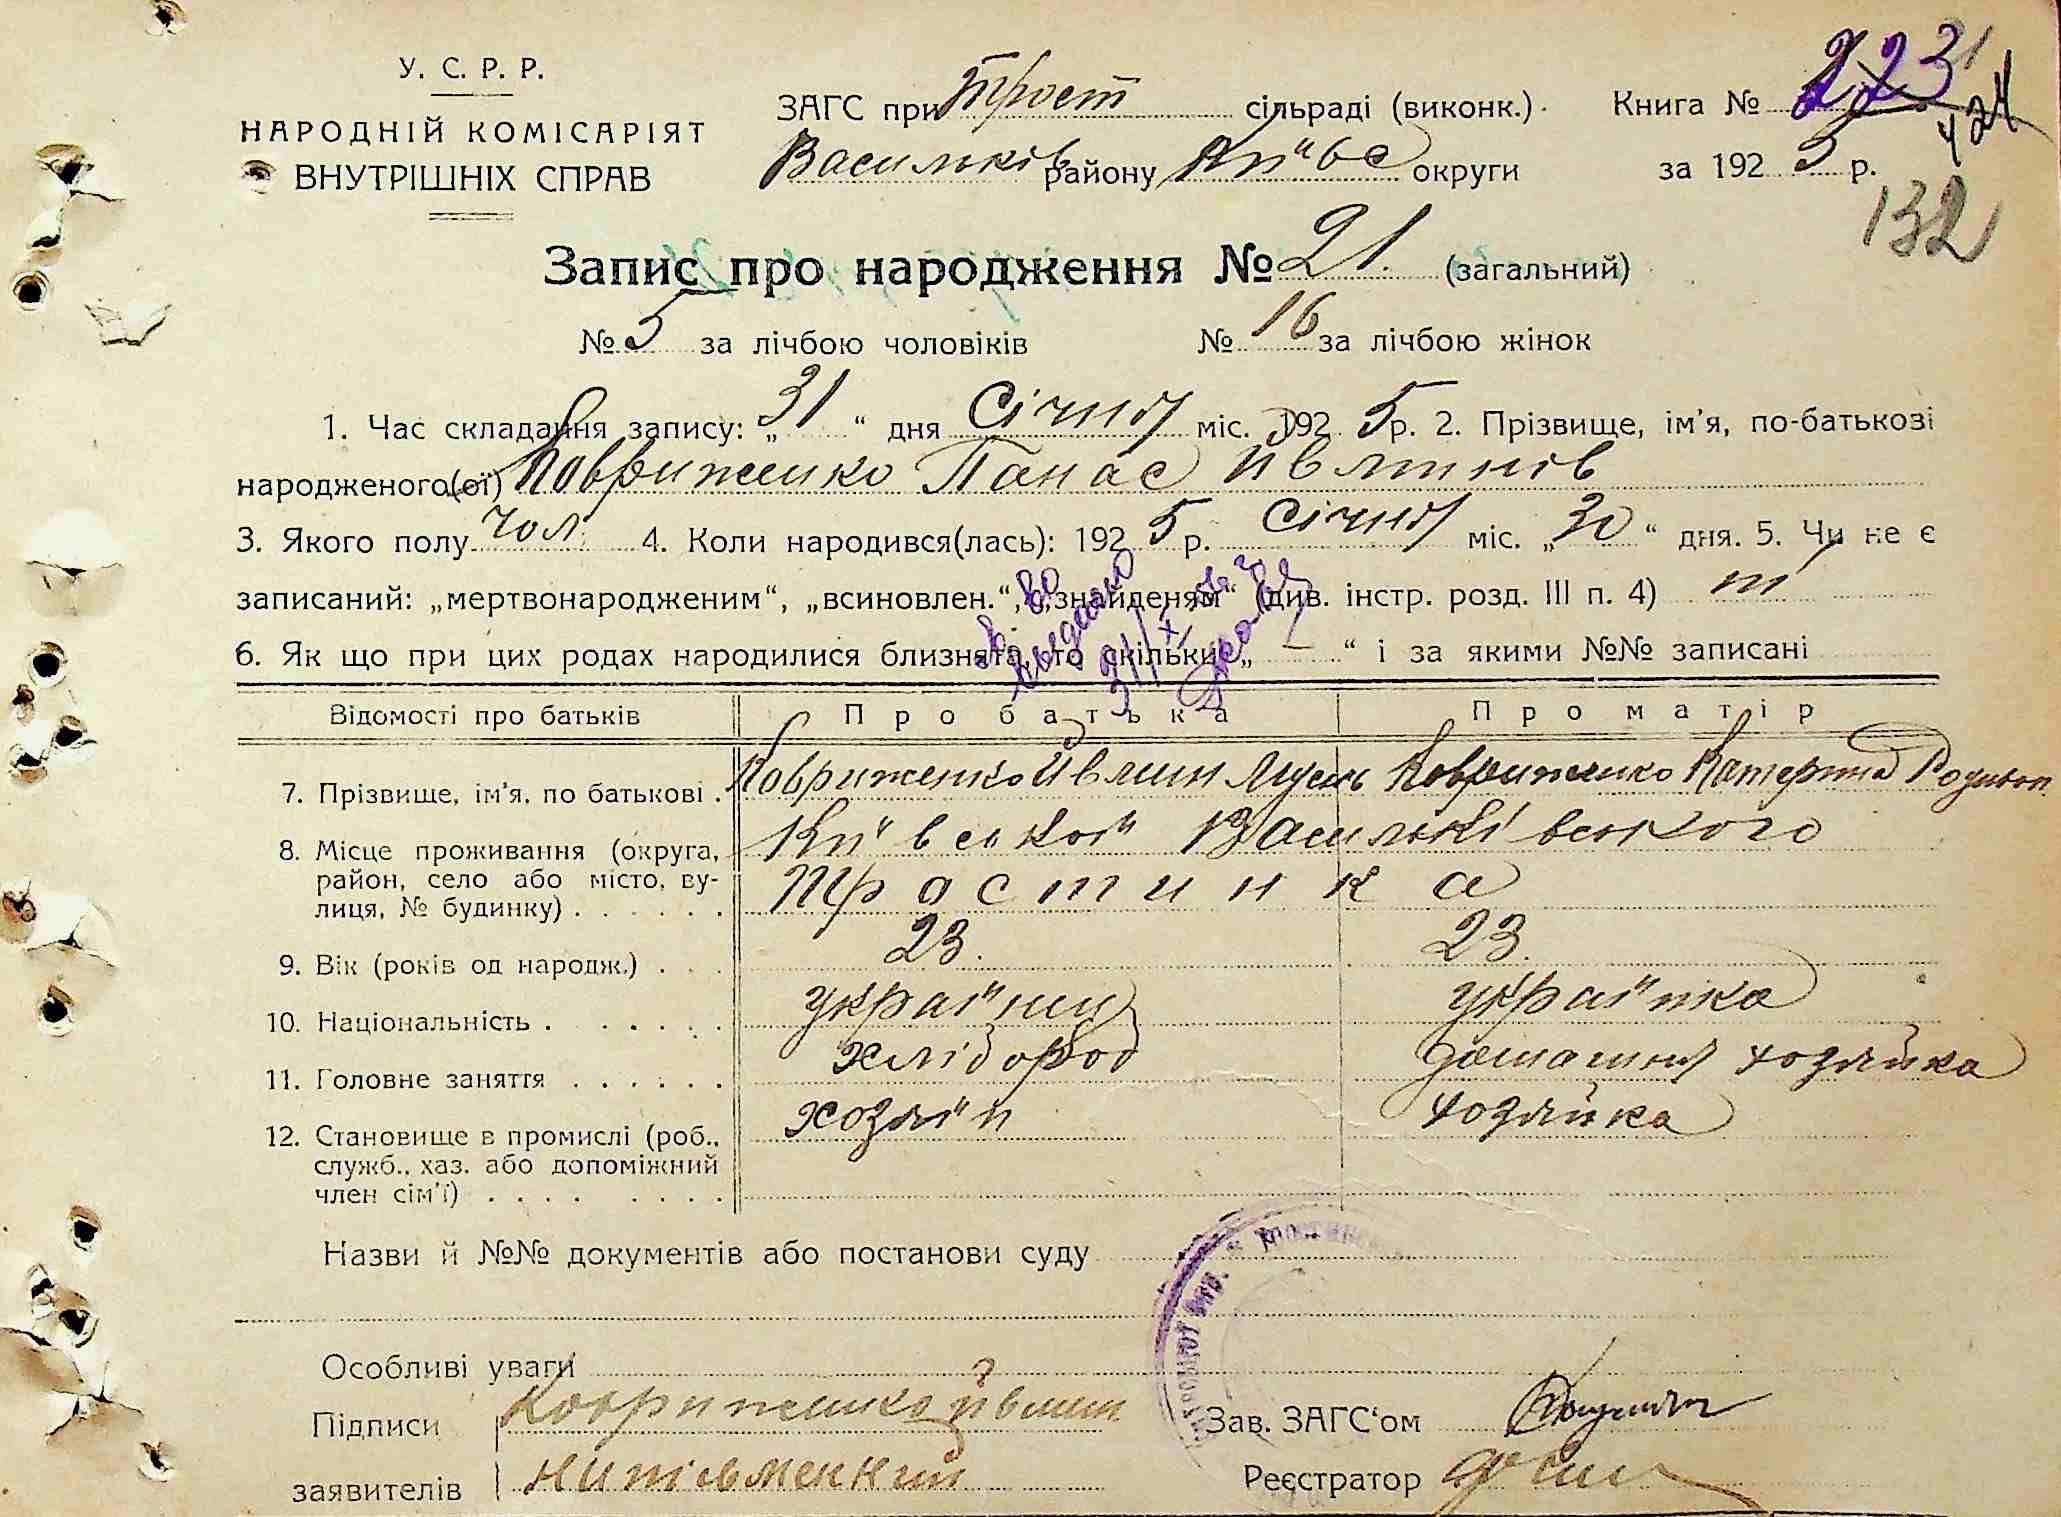 У. С. Р. Р.
НАРОДНІЙ КОМІСАРІЯТ
ВНУТРІШНІХ СПРАВ
ЗАГС при Трост сільраді (виконк.) Книга № 223
Васильків району Київс округи за 1925 р.
132
Запис про народження № 21. (загальний)
№ 5 за лічбою чоловіків № 16 за лічбою жінок
1. Час складання запису: „31“ дня Січня міс. 1925 р. 2. Прізвище, ім'я, по-батькові
народженого(ої) Ковриженко Панас Ивлинів
3. Якого полу чол. 4. Коли народився(лась): 1925 р. Січня міс. „30“ дня. 5. Чи не є
записаний: „мертвонародженим“, „всиновлен.“, „знайденям“ (див. інстр. розд. III п. 4) ні
6. Як що при цих родах народилися близнята, то скільки „ – “ і за якими №№ записані
Відомості про батьків Про батька Про матір
7. Прізвище, ім'я, по батькові . Ковриженко Ивлин Ковриженко Катерина
8. Місце проживання (округа, Київської Васильківського
район, село або місто, ву- Тростинка
лиця, № будинку) . . . . . .
9. Вік (років од народж.) . . . 23. 23.
10. Національність . . . . . . українц українка
11. Головне заняття . . . . . . хлібороб домашня хозяйка
12. Становище в промислі (роб., хозяїн хозяйка
служб., хаз. або допоміжний
член сім'ї) . . . . . . . .
Назви й №№ документів або постанови суду
Особливі уваги
Підписи Ковриженко Ивлин Зав. ЗАГС'ом
заявителів нипісьменний Реєстратор